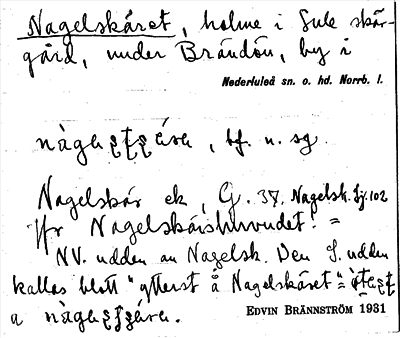 Nagelskäret, holme i Lule skär-
gård, under Brändön, by i
Nederluleå sn. o. hd. Norrb. l.
, bf. n. sg.
Nagelskär ek, G. 37, Nagelsk. Lj. 102
Jfr Nagelskärshuvudet: =
NV. udden av Nagelsk. Den S. udden
kallas blott "ytterst å Nagelskäret" =
a
EDVIN BRÄNNSTRÖM 1931